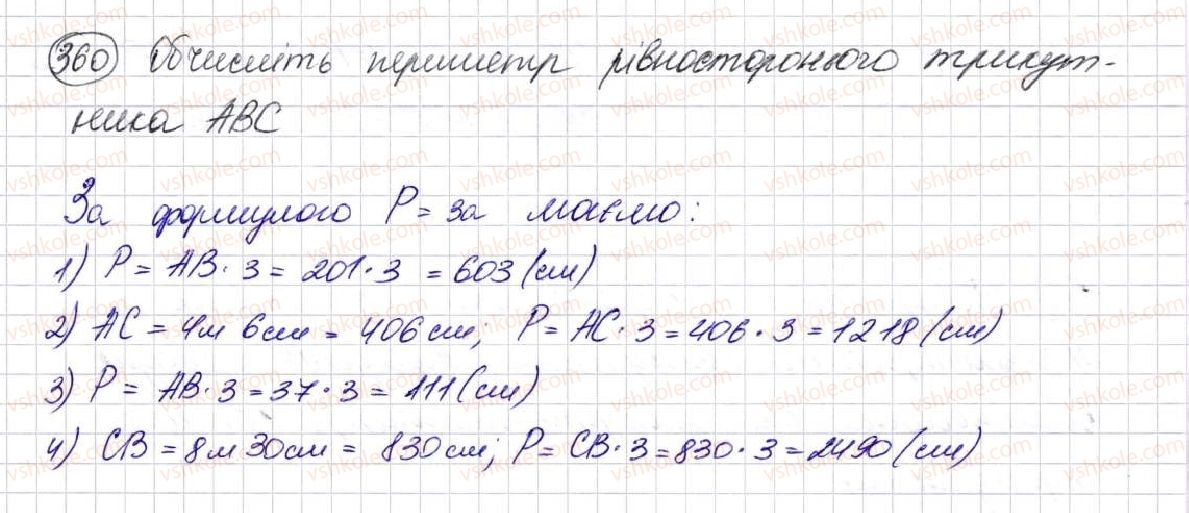 360 Обчисліть периметр рівностороннього трикут-
ника ABC
За формулою P = 3a маємо:
1) P = AB · 3 = 201 · 3 = 603 (см)
2) AC = 4м 6см = 406 см; P = AC · 3 = 406 · 3 = 1218 (см)
3) P = AB · 3 = 37 · 3 = 111 (см)
4) CB = 8м 30см = 830 см; P = CB · 3 = 830 · 3 = 2490 (см)